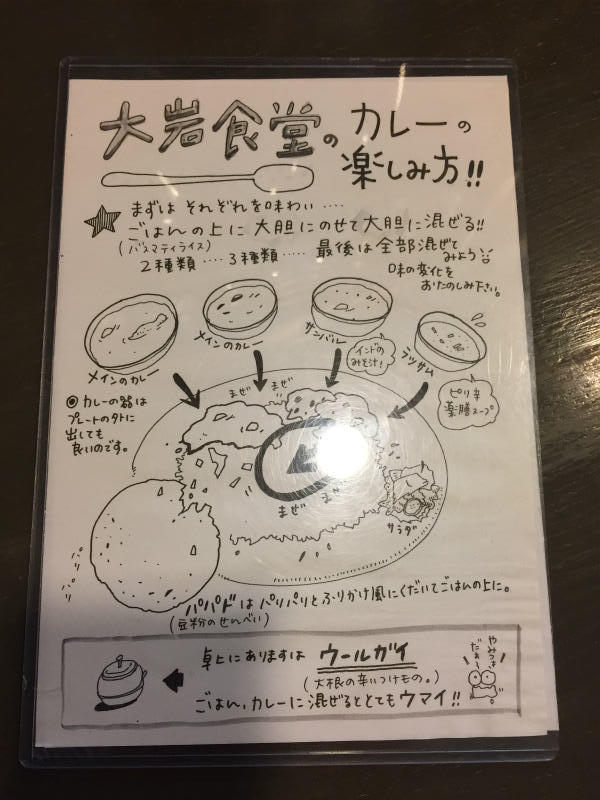 大岩食堂の カレーの
楽しみ方!!
まずは それぞれを味わい‥‥
ごはんの上に 大胆にのせて大胆に混ぜる!!
(バスマティライス)
2種類‥‥3種類‥‥ 最後は全部混ぜて
みよう
味の変化を
おたのしみ下さい。
メインのカレー
メインのカレー
サンバル
インドの
みそ汁!
ラッサム
ピリ辛
薬膳スープ
◎カレーの器は
プレートの外に
出しても
良いのです。
まぜ まぜ
まぜ まぜ
サラダ
パリ パリ
パパドは パリパリとふりかけ風にくだいてごはんの上に。
(豆粉のせんべい)
卓上にありますは ウールガイ
(大根の辛いつけもの。)
ごはん、カレーに混ぜるととてもウマイ!!
やみつき
だぁ〜